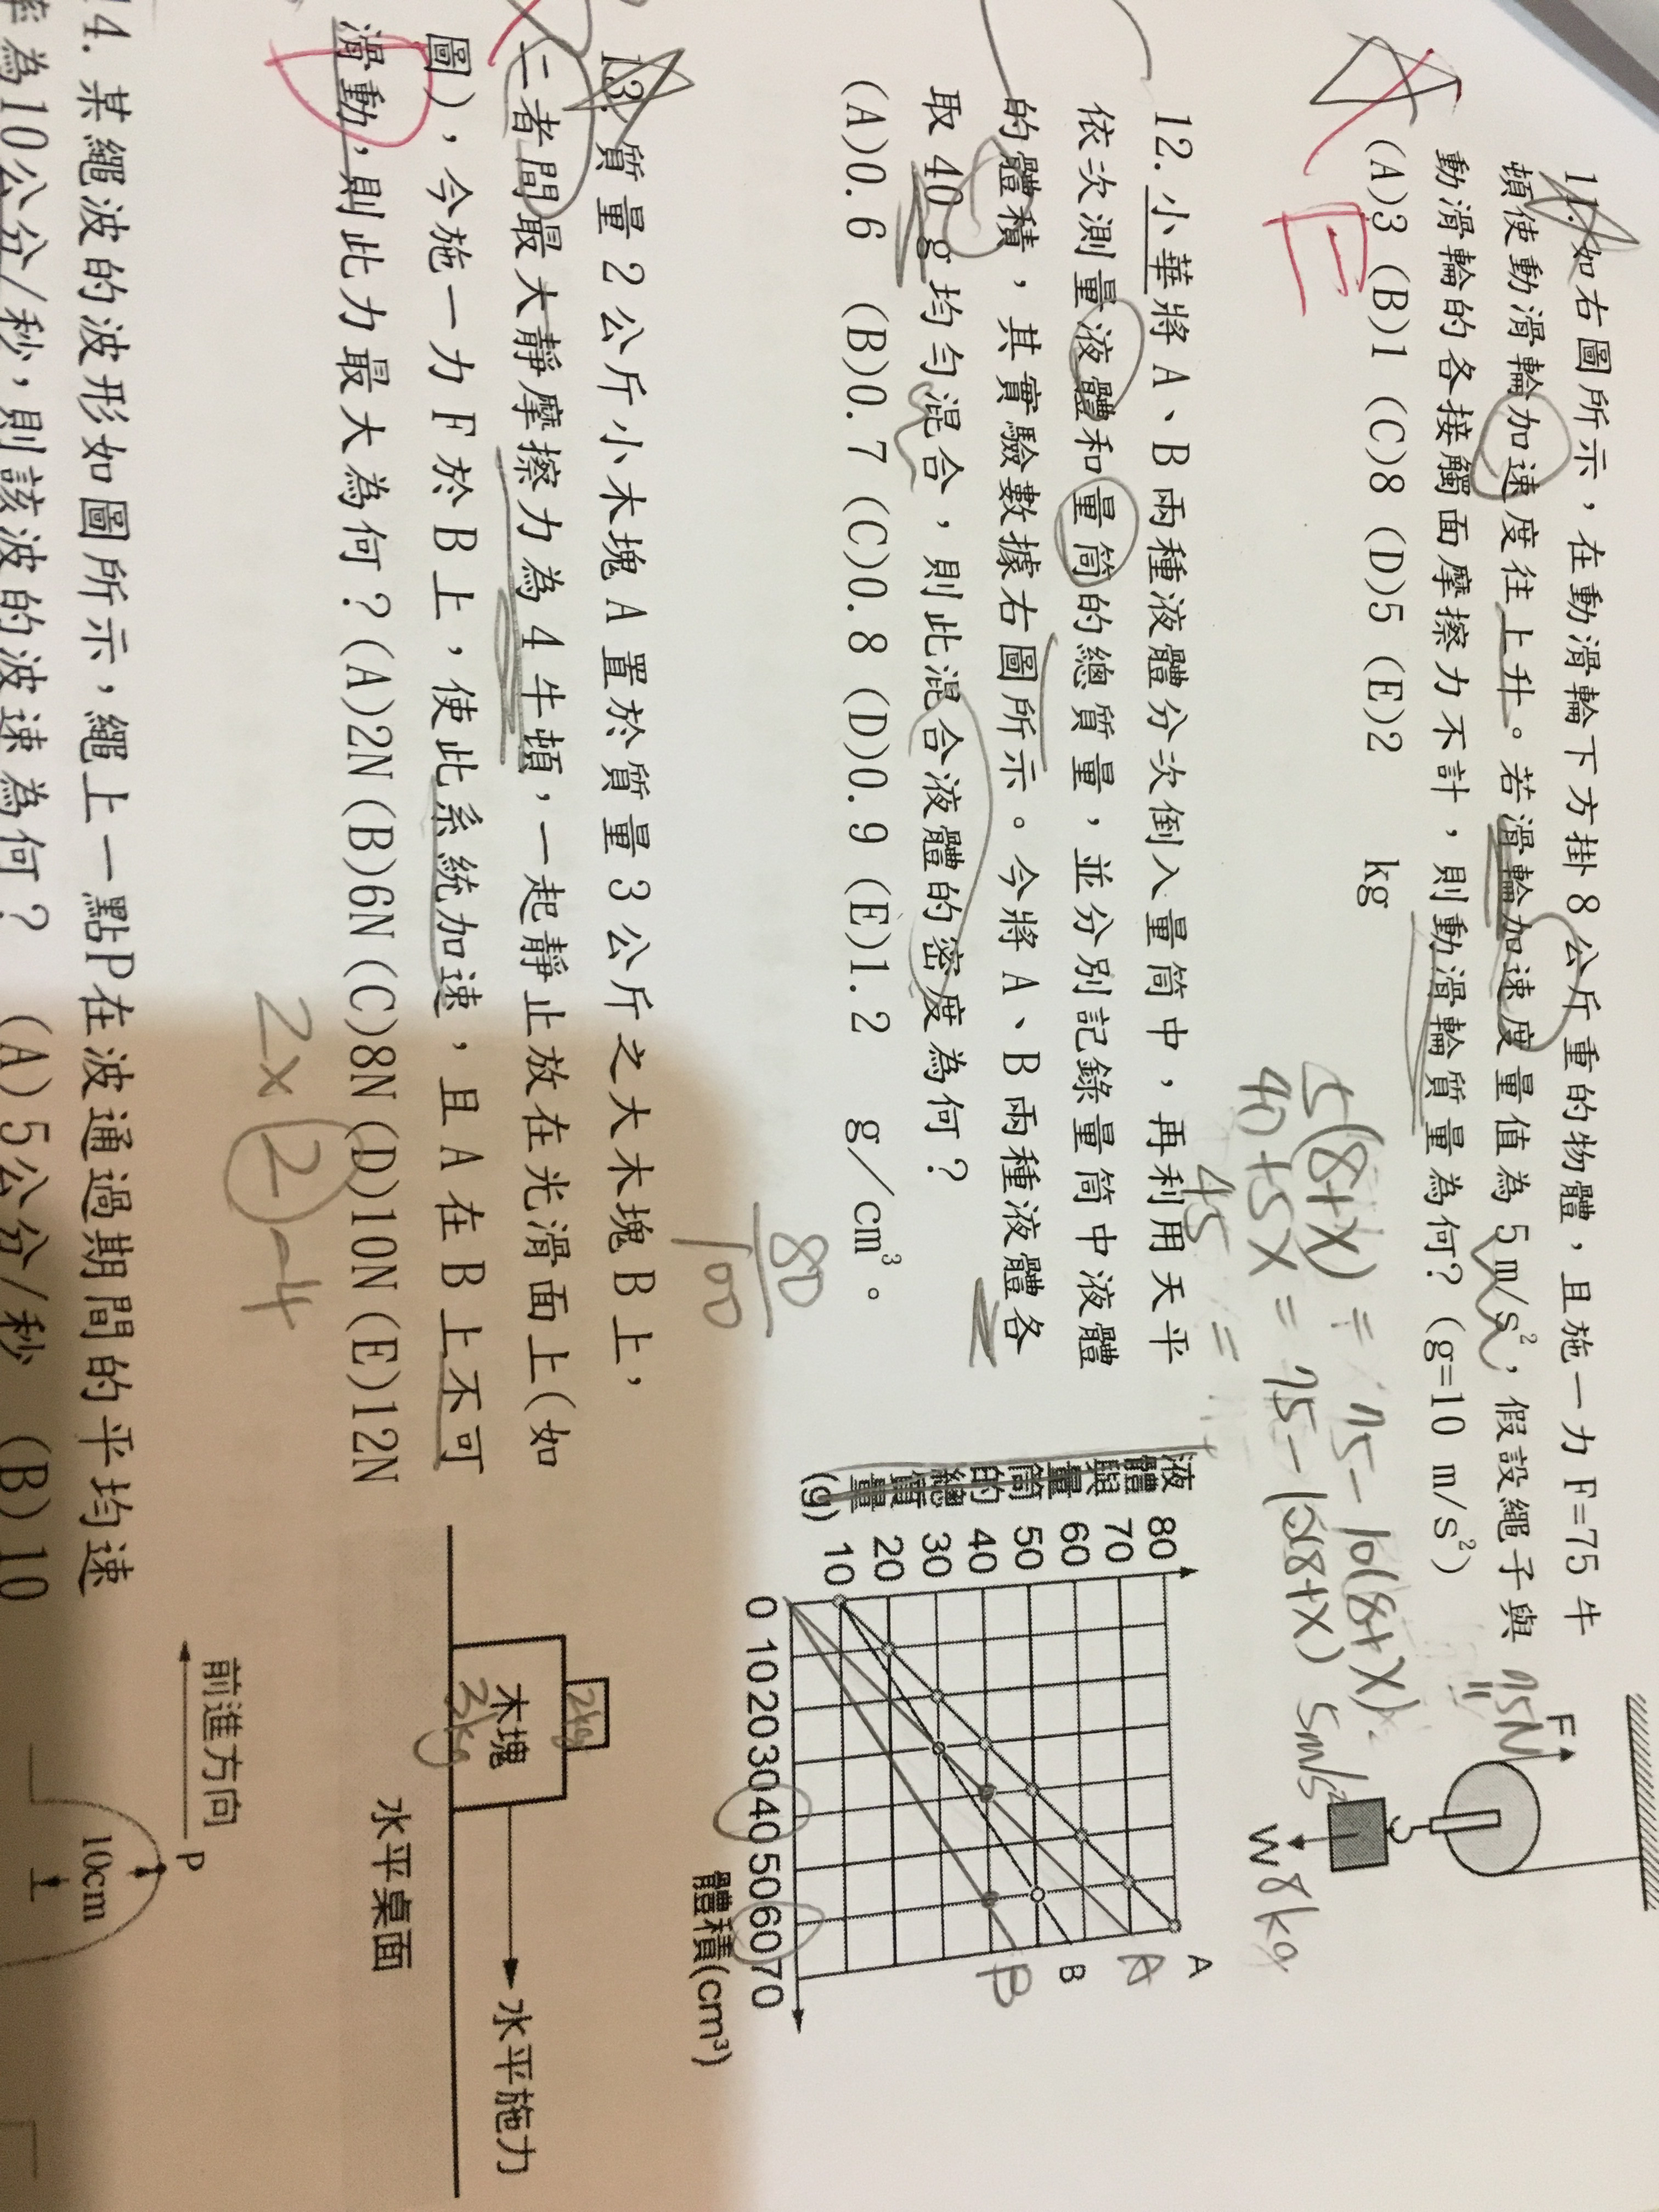 11. 如右圖所示，在動滑輪下方掛 8 公斤重的物體，且施一力 F=75 牛
頓使動滑輪加速度往上升。若滑輪加速度量值為 5 m/s²，假設繩子與
動滑輪的各接觸面摩擦力不計，則動滑輪質量為何？(g=10 m/s²)
(A)3 (B)1 (C)8 (D)5 (E)2 kg
E
5(8+X) = 75-10(8+X)
40+5X = 75-10(8+X)
45 =
F
75N
5m/s²
W 8kg
12. 小華將 A、B 兩種液體分次倒入量筒中，再利用天平
依次測量液體和量筒的總質量，並分別記錄量筒中液體
的體積，其實驗數據右圖所示。今將 A、B 兩種液體各
取 40 g 均勻混合，則此混合液體的密度為何？
(A)0.6 (B)0.7 (C)0.8 (D)0.9 (E)1.2 g/cm³。
80
100
液體與量筒的總質量(g)
80
70
60
50
40
30
20
10
0 10 20 30 40 50 60 70
體積(cm³)
A
B
A
B
13. 質量 2 公斤小木塊 A 置於質量 3 公斤之大木塊 B 上，
二者間最大靜摩擦力為 4 牛頓，一起靜止放在光滑面上(如
圖)，今施一力 F 於 B 上，使此系統加速，且 A 在 B 上不可
滑動，則此力最大為何？(A)2N (B)6N (C)8N (D)10N (E)12N
2x2=4
2kg
木塊
3kg
水平施力
水平桌面
14. 某繩波的波形如圖所示，繩上一點P在波通過期間的平均速
率為10公分/秒，則該波的波速為何？ (A)5公分/秒 (B)10
前進方向
P
10cm